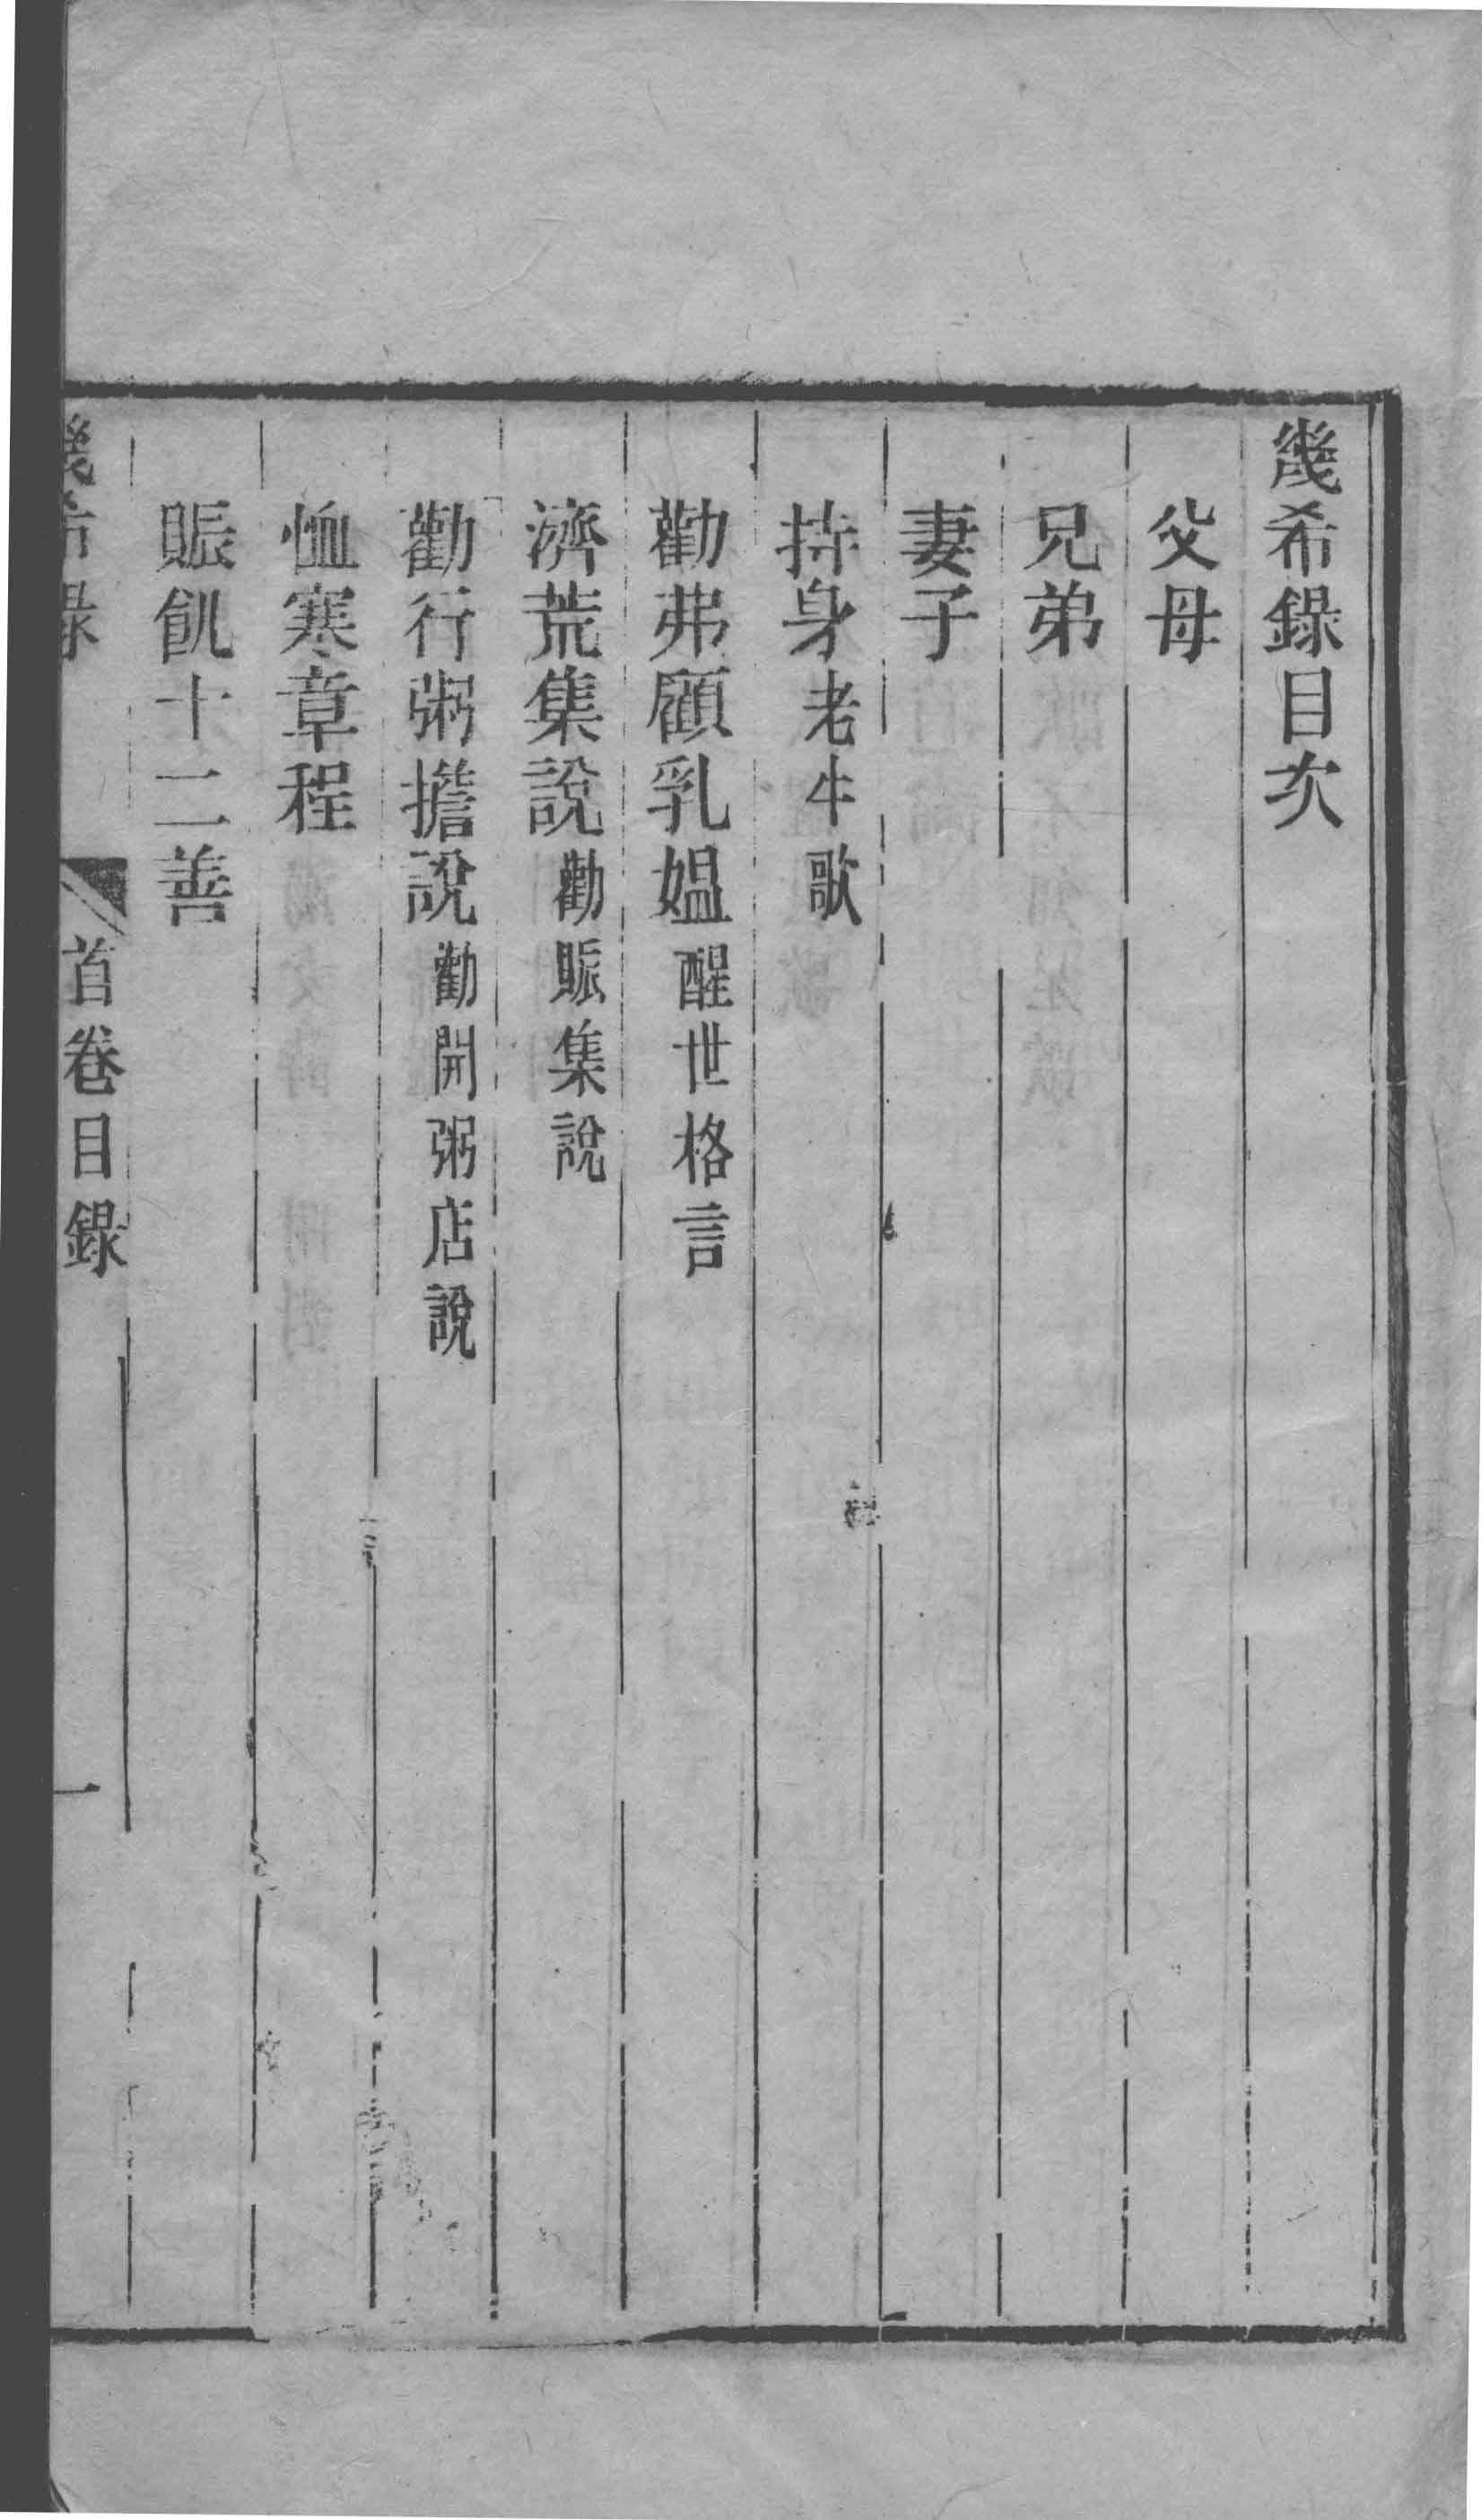 幾希錄目次
父母
兄弟
妻子
持身 老牛歌
勸弗顧乳媼 醒世格言
濟荒集說 勸賑集說
勸行粥擔說 勸開粥店說
恤寒章程
賑飢十二善
幾希錄 首卷目錄 一